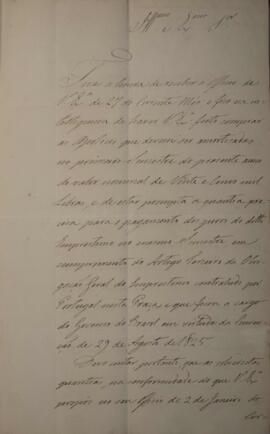 Illmo e Exmo Snr
Tive a honra de receber o Officio de
V. Exa de 27 do corrente Mez, e fico na in-
telligencia de haver V. Exa feito comprar
as Apolices que devem ser amortisadas
no primeiro Semestre do presente anno
do valor nominal de Vinte e Cinco mil
Libras, e de estar prompta a quantia pre-
cisa para o pagamento dos juros do ditto
Emprestimo no mesmo Semestre em
cumprimento do Artigo Terceiro da Obri-
gação Geral do Emprestimo contrahido por
Portugal nesta Praça, e que ficou a cargo
do Governo do Brasil em virtude da Conven-
ção de 29 de Agosto de 1825.
Devo contar portanto que as
quantias, na conformidade do que V. Exa
no seu Officio de 2 de Janeiro do